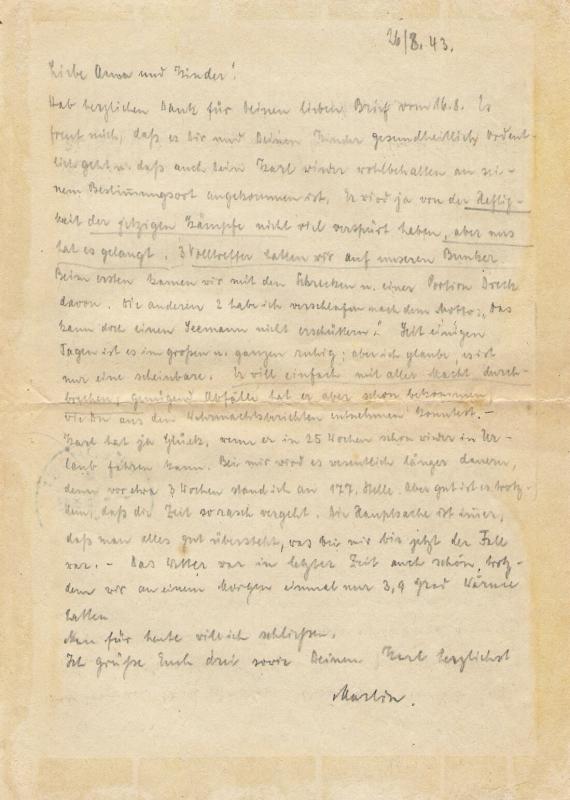 26/8. 43.
Liebe Anna und Kinder!
Hab herzlichen Dank für Deinen lieben Brief vom 16.8. Es
freut mich, daß es Dir und Deinen Kinder gesundheitlich ordent-
lich geht u. daß auch Dein Karl wieder wohlbehalten an sei-
nem Bestimmungsort angekommen ist. Er wird ja von der Heftig-
keit der jetzigen Kämpfe nicht viel verspürt haben, aber uns
hat es gelangt. 3 Volltreffer hatten wir auf unseren Bunker.
Beim ersten kamen wir mit den Schrecken u. einer Portion Dreck
davon. Die anderen 2 habe ich verschlafen nach dem Motto: „Das
kann doch einen Seemann nicht erschüttern." Seit einigen
Tagen ist es im großen u. ganzen ruhig; aber ich glaube, es ist
nur eine scheinbare. Er will einfach mit aller Macht durch-
brechen, genügend Abfälle hat er aber schon bekommen,
wie Du aus den Wehrmachtsberichten entnehmen konntest. -
Karl hat ja Glück, wenn er in 25 Wochen schon wieder in Ur-
laub fahren kann. Bei mir wird es wesentlich länger dauern,
denn vor etwa 3 Wochen stand ich an 177. Stelle. Aber gut ist es trotz-
dem, daß die Zeit so rasch vergeht. Die Hauptsache ist immer,
daß man alles gut übersteht, was bei mir bis jetzt der Fall
war. - Das Wetter war in letzter Zeit auch schön, trotz-
dem wir an einem Morgen einmal nur 3,9 Grad Wärme
hatten.
Nun für heute will ich schließen.
Ich grüße Euch drei sowie Deinen Karl herzlichst
Martin.